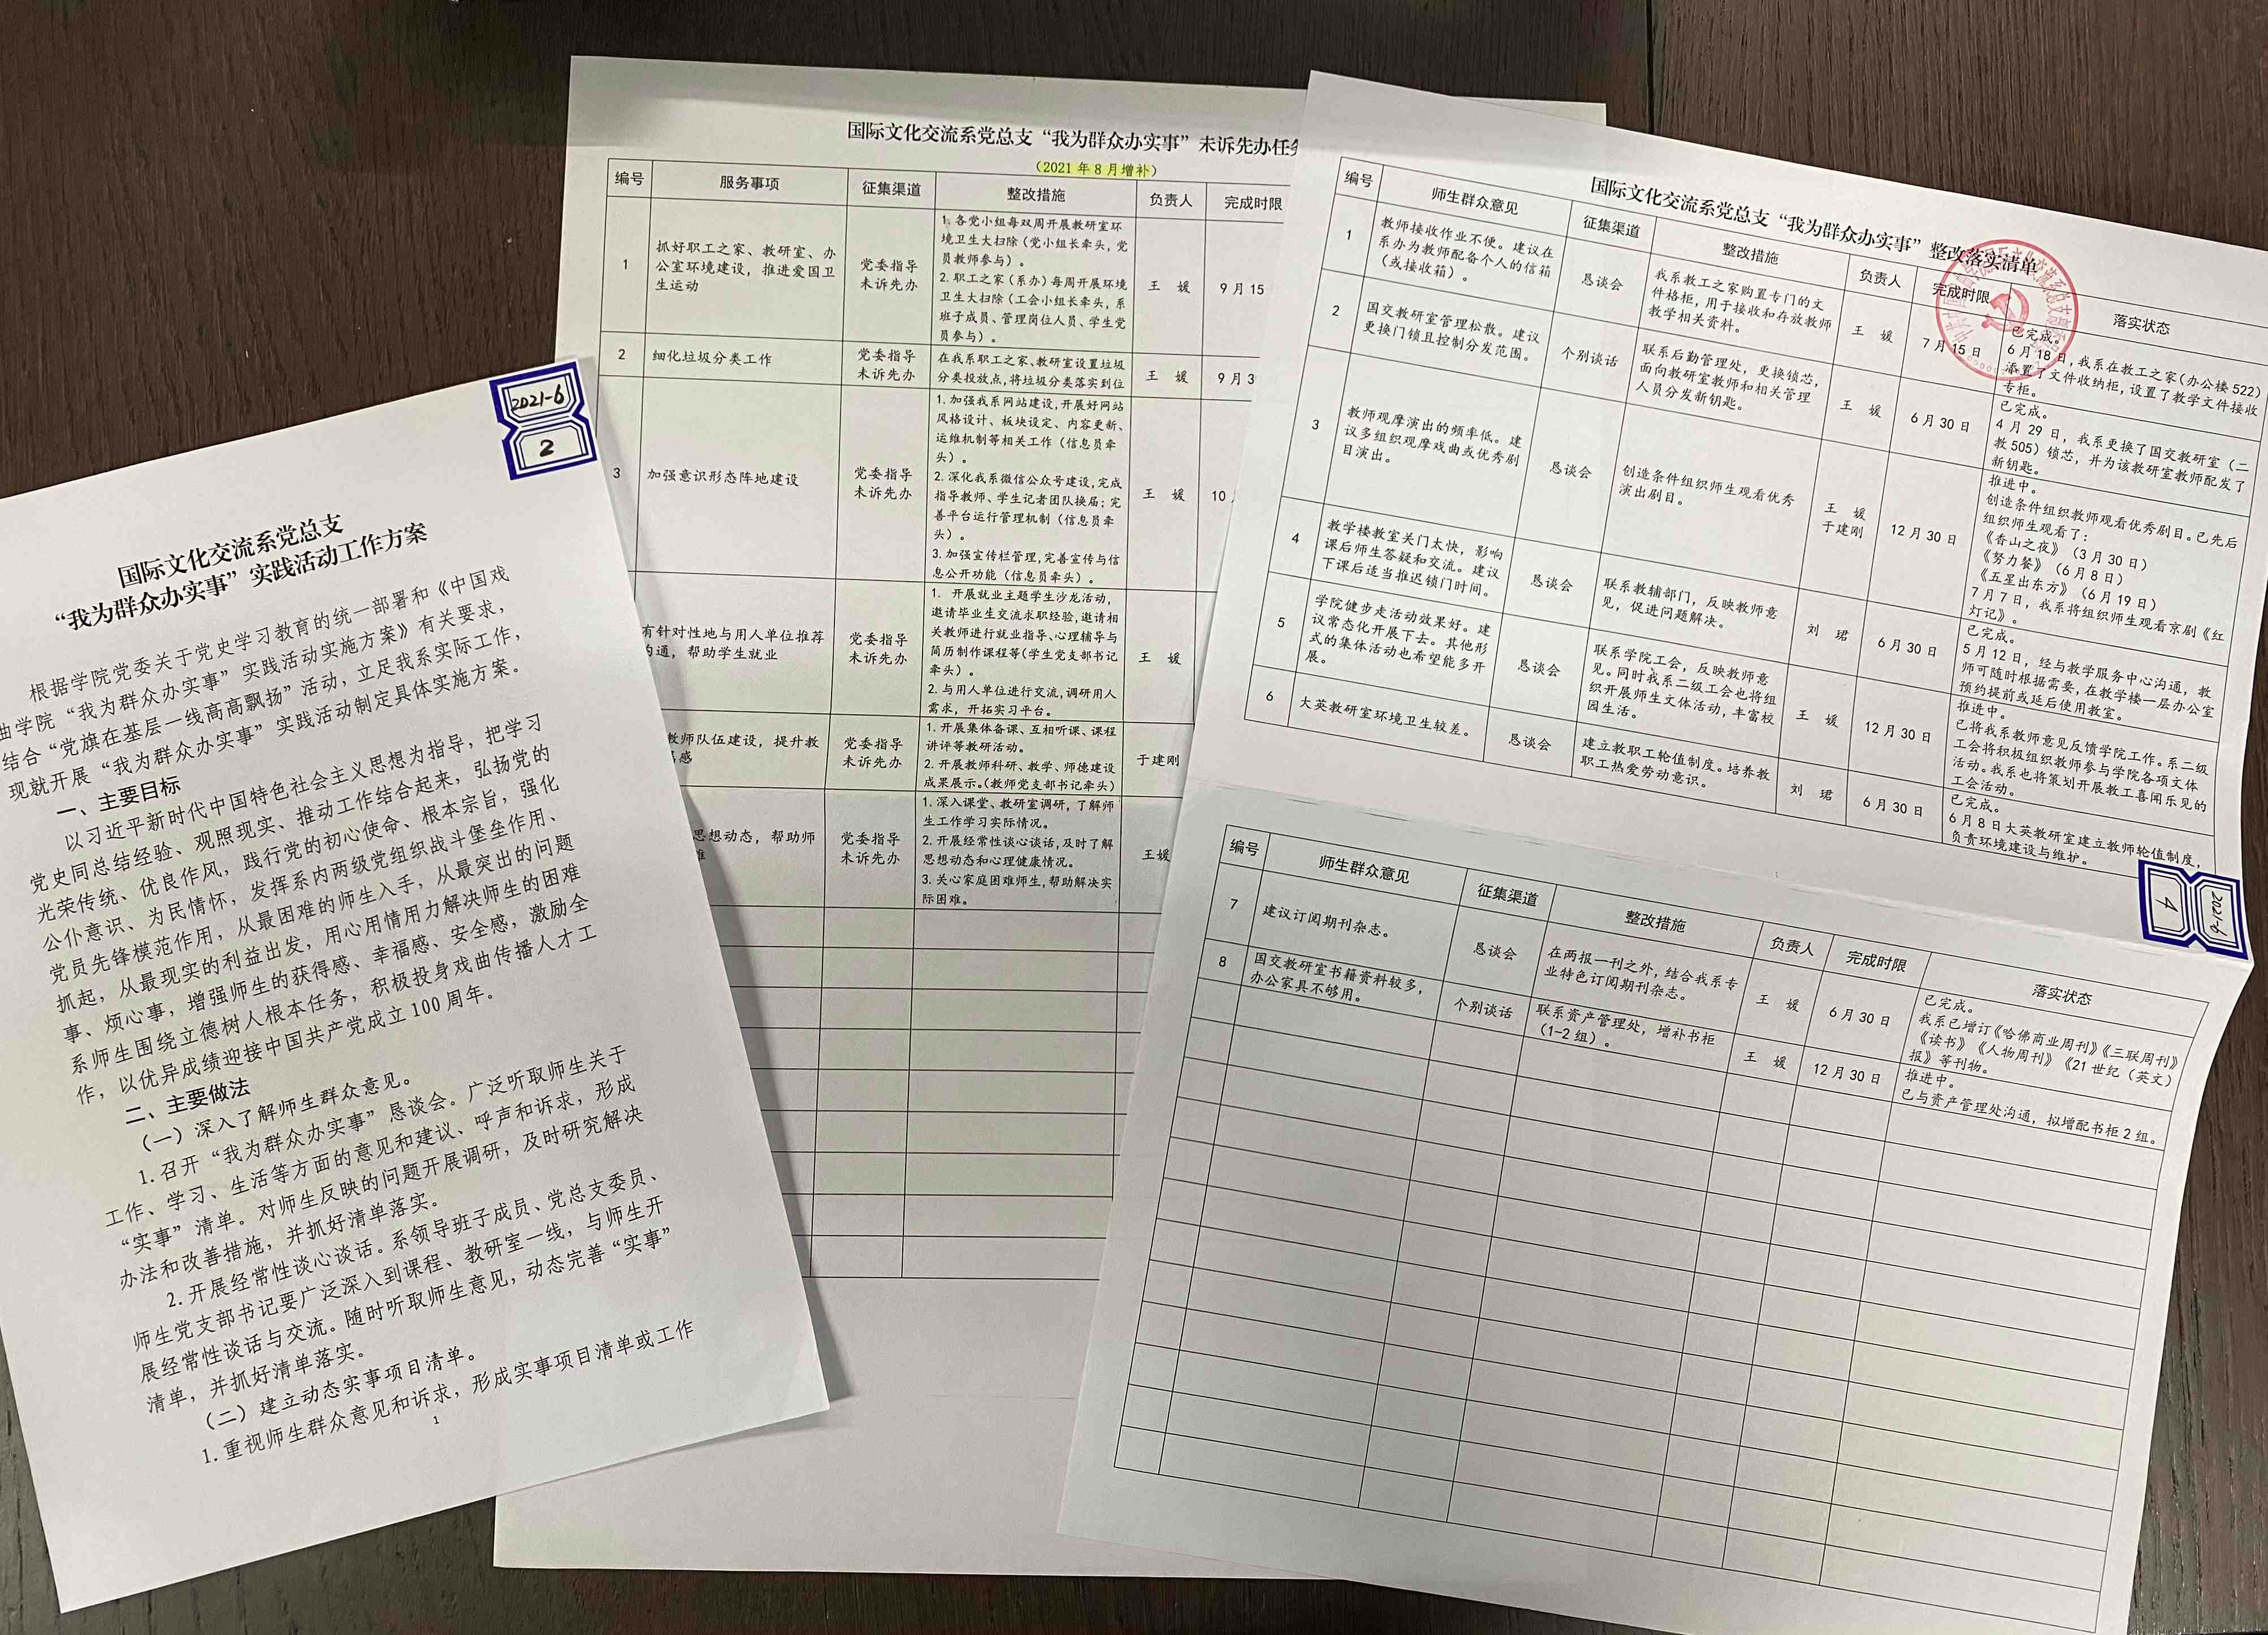 2021-6
2
国际文化交流系党总支
“我为群众办实事”实践活动工作方案
根据学院党委关于党史学习教育的统一部署和《中国戏
曲学院“我为群众办实事”实践活动实施方案》有关要求，
结合“党旗在基层一线高高飘扬”活动，立足我系实际工作，
现就开展“我为群众办实事”实践活动制定具体实施方案。
一、主要目标
以习近平新时代中国特色社会主义思想为指导，把学习
党史同总结经验、观照现实、推动工作结合起来，弘扬党的
光荣传统、优良作风，践行党的初心使命、根本宗旨，强化
公仆意识、为民情怀，发挥系内两级党组织战斗堡垒作用、
党员先锋模范作用，从最困难的师生入手，从最突出的问题
抓起，从最现实的利益出发，用心用情用力解决师生的困难
事、烦心事，增强师生的获得感、幸福感、安全感，激励全
系师生围绕立德树人根本任务，积极投身戏曲传播人才工
作，以优异成绩迎接中国共产党成立100周年。
二、主要做法
（一）深入了解师生群众意见。
1.召开“我为群众办实事”恳谈会。广泛听取师生关于
工作、学习、生活等方面的意见和建议、呼声和诉求，形成
“实事”清单。对师生反映的问题开展调研，及时研究解决
办法和改善措施，并抓好清单落实。
2.开展经常性谈心谈话。系领导班子成员、党总支委员、
师生党支部书记要广泛深入到课程、教研室一线，与师生开
展经常性谈话与交流。随时听取师生意见，动态完善“实事”
清单，并抓好清单落实。
（二）建立动态实事项目清单。
1.重视师生群众意见和诉求，形成实事项目清单或工作
1
国际文化交流系党总支“我为群众办实事”未诉先办任
（2021年8月增补）
编号 服务事项 征集渠道 整改措施 负责人 完成时限
1
抓好职工之家、教研室、办
公室环境建设，推进爱国卫
生运动
党委指导
未诉先办
1.各党小组每双周开展教研室环
境卫生大扫除（党小组长牵头，党
员教师参与）。
2.职工之家（系办）每周开展环境
卫生大扫除（工会小组长牵头，系
班子成员、管理岗位人员、学生党
员参与）。
王 媛
9月15
2
细化垃圾分类工作
党委指导
未诉先办
在我系职工之家、教研室设置垃圾
分类投放点，将垃圾分类落实到位
王 媛
9月3
3
加强意识形态阵地建设
党委指导
未诉先办
1.加强我系网站建设，开展好网站
风格设计、板块设定、内容更新、
运维机制等相关工作（信息员牵
头）。
2.深化我系微信公众号建设，完成
指导教师、学生记者团队换届；完
善平台运行管理机制（信息员牵
头）。
3.加强宣传栏管理，完善宣传与信
息公开功能（信息员牵头）。
王 媛
10
有针对性地与用人单位推荐
沟通，帮助学生就业
党委指导
未诉先办
1. 开展就业主题学生沙龙活动，
邀请毕业生交流求职经验，邀请相
关教师进行就业指导、心理辅导与
简历制作课程等（学生党支部书记
牵头）。
2.与用人单位进行交流，调研用人
需求，开拓实习平台。
王 媛
教师队伍建设，提升教
感
党委指导
未诉先办
1.开展集体备课、互相听课、课程
讲评等教研活动。
2.开展教师科研、教学、师德建设
成果展示。（教师党支部书记牵头）
于建刚
思想动态，帮助师
难
党委指导
未诉先办
1.深入课堂、教研室调研，了解师
生工作学习实际情况。
2.开展经常性谈心谈话，及时了解
思想动态和心理健康情况。
3.关心家庭困难师生，帮助解决实
际困难。
王媛
国际文化交流系党总支“我为群众办实事”整改落实清单
编号 师生群众意见 征集渠道 整改措施 负责人 完成时限 落实状态
1
教师接收作业不便。建议在
系办为教师配备个人的信箱
（或接收箱）。
恳谈会
我系教工之家购置专门的文
件格柜，用于接收和存放教师
教学相关资料。
王 媛
7月15日
已完成。
6月18日，我系在教工之家（办公楼522）
添置了文件收纳柜，设置了教学文件接收
专柜。
2
国交教研室管理松散。建议
更换门锁且控制分发范围。
个别谈话
联系后勤管理处，更换锁芯，
面向教研室教师和相关管理
人员分发新钥匙。
王 媛
6月30日
已完成。
4月29日，我系更换了国交教研室（二
教505）锁芯，并为该教研室教师配发了
新钥匙。
3
教师观摩演出的频率低。建
议多组织观摩戏曲或优秀剧
目演出。
恳谈会
创造条件组织师生观看优秀
演出剧目。
王 媛
于建刚
12月30日
推进中。
创造条件组织教师观看优秀剧目。已先后
组织师生观看了：
《香山之夜》（3月30日）
《努力餐》（6月8日）
《五星出东方》（6月19日）
7月7日，我系将组织师生观看京剧《红
灯记》。
4
教学楼教室关门太快，影响
课后师生答疑和交流。建议
下课后适当推迟锁门时间。
恳谈会
联系教辅部门，反映教师意
见，促进问题解决。
刘 珺
6月30日
已完成。
5月12日，经与教学服务中心沟通，教
师可随时根据需要，在教学楼一层办公室
预约提前或延后使用教室。
5
学院健步走活动效果好。建
议常态化开展下去。其他形
式的集体活动也希望能多开
展。
恳谈会
联系学院工会，反映教师意
见。同时我系二级工会也将组
织开展师生文体活动，丰富校
园生活。
王 媛
12月30日
推进中。
已将我系教师意见反馈学院工作。系二级
工会将积极组织教师参与学院各项文体
活动。我系也将策划开展教工喜闻乐见的
工会活动。
6
大英教研室环境卫生较差。
恳谈会
建立教职工轮值制度。培养教
职工热爱劳动意识。
刘 珺
6月30日
已完成。
6月8日大英教研室建立教师轮值制度，
负责环境建设与维护。
2021-6
4
编号 师生群众意见 征集渠道 整改措施 负责人 完成时限 落实状态
7
建议订阅期刊杂志。
恳谈会
在两报一刊之外，结合我系专
业特色订阅期刊杂志。
王 媛
6月30日
已完成。
我系已增订《哈佛商业周刊》《三联周刊》
《读书》《人物周刊》《21世纪（英文）
报》等刊物。
8
国交教研室书籍资料较多，
办公家具不够用。
个别谈话
联系资产管理处，增补书柜
（1-2组）。
王 媛
12月30日
推进中。
已与资产管理处沟通，拟增配书柜2组。